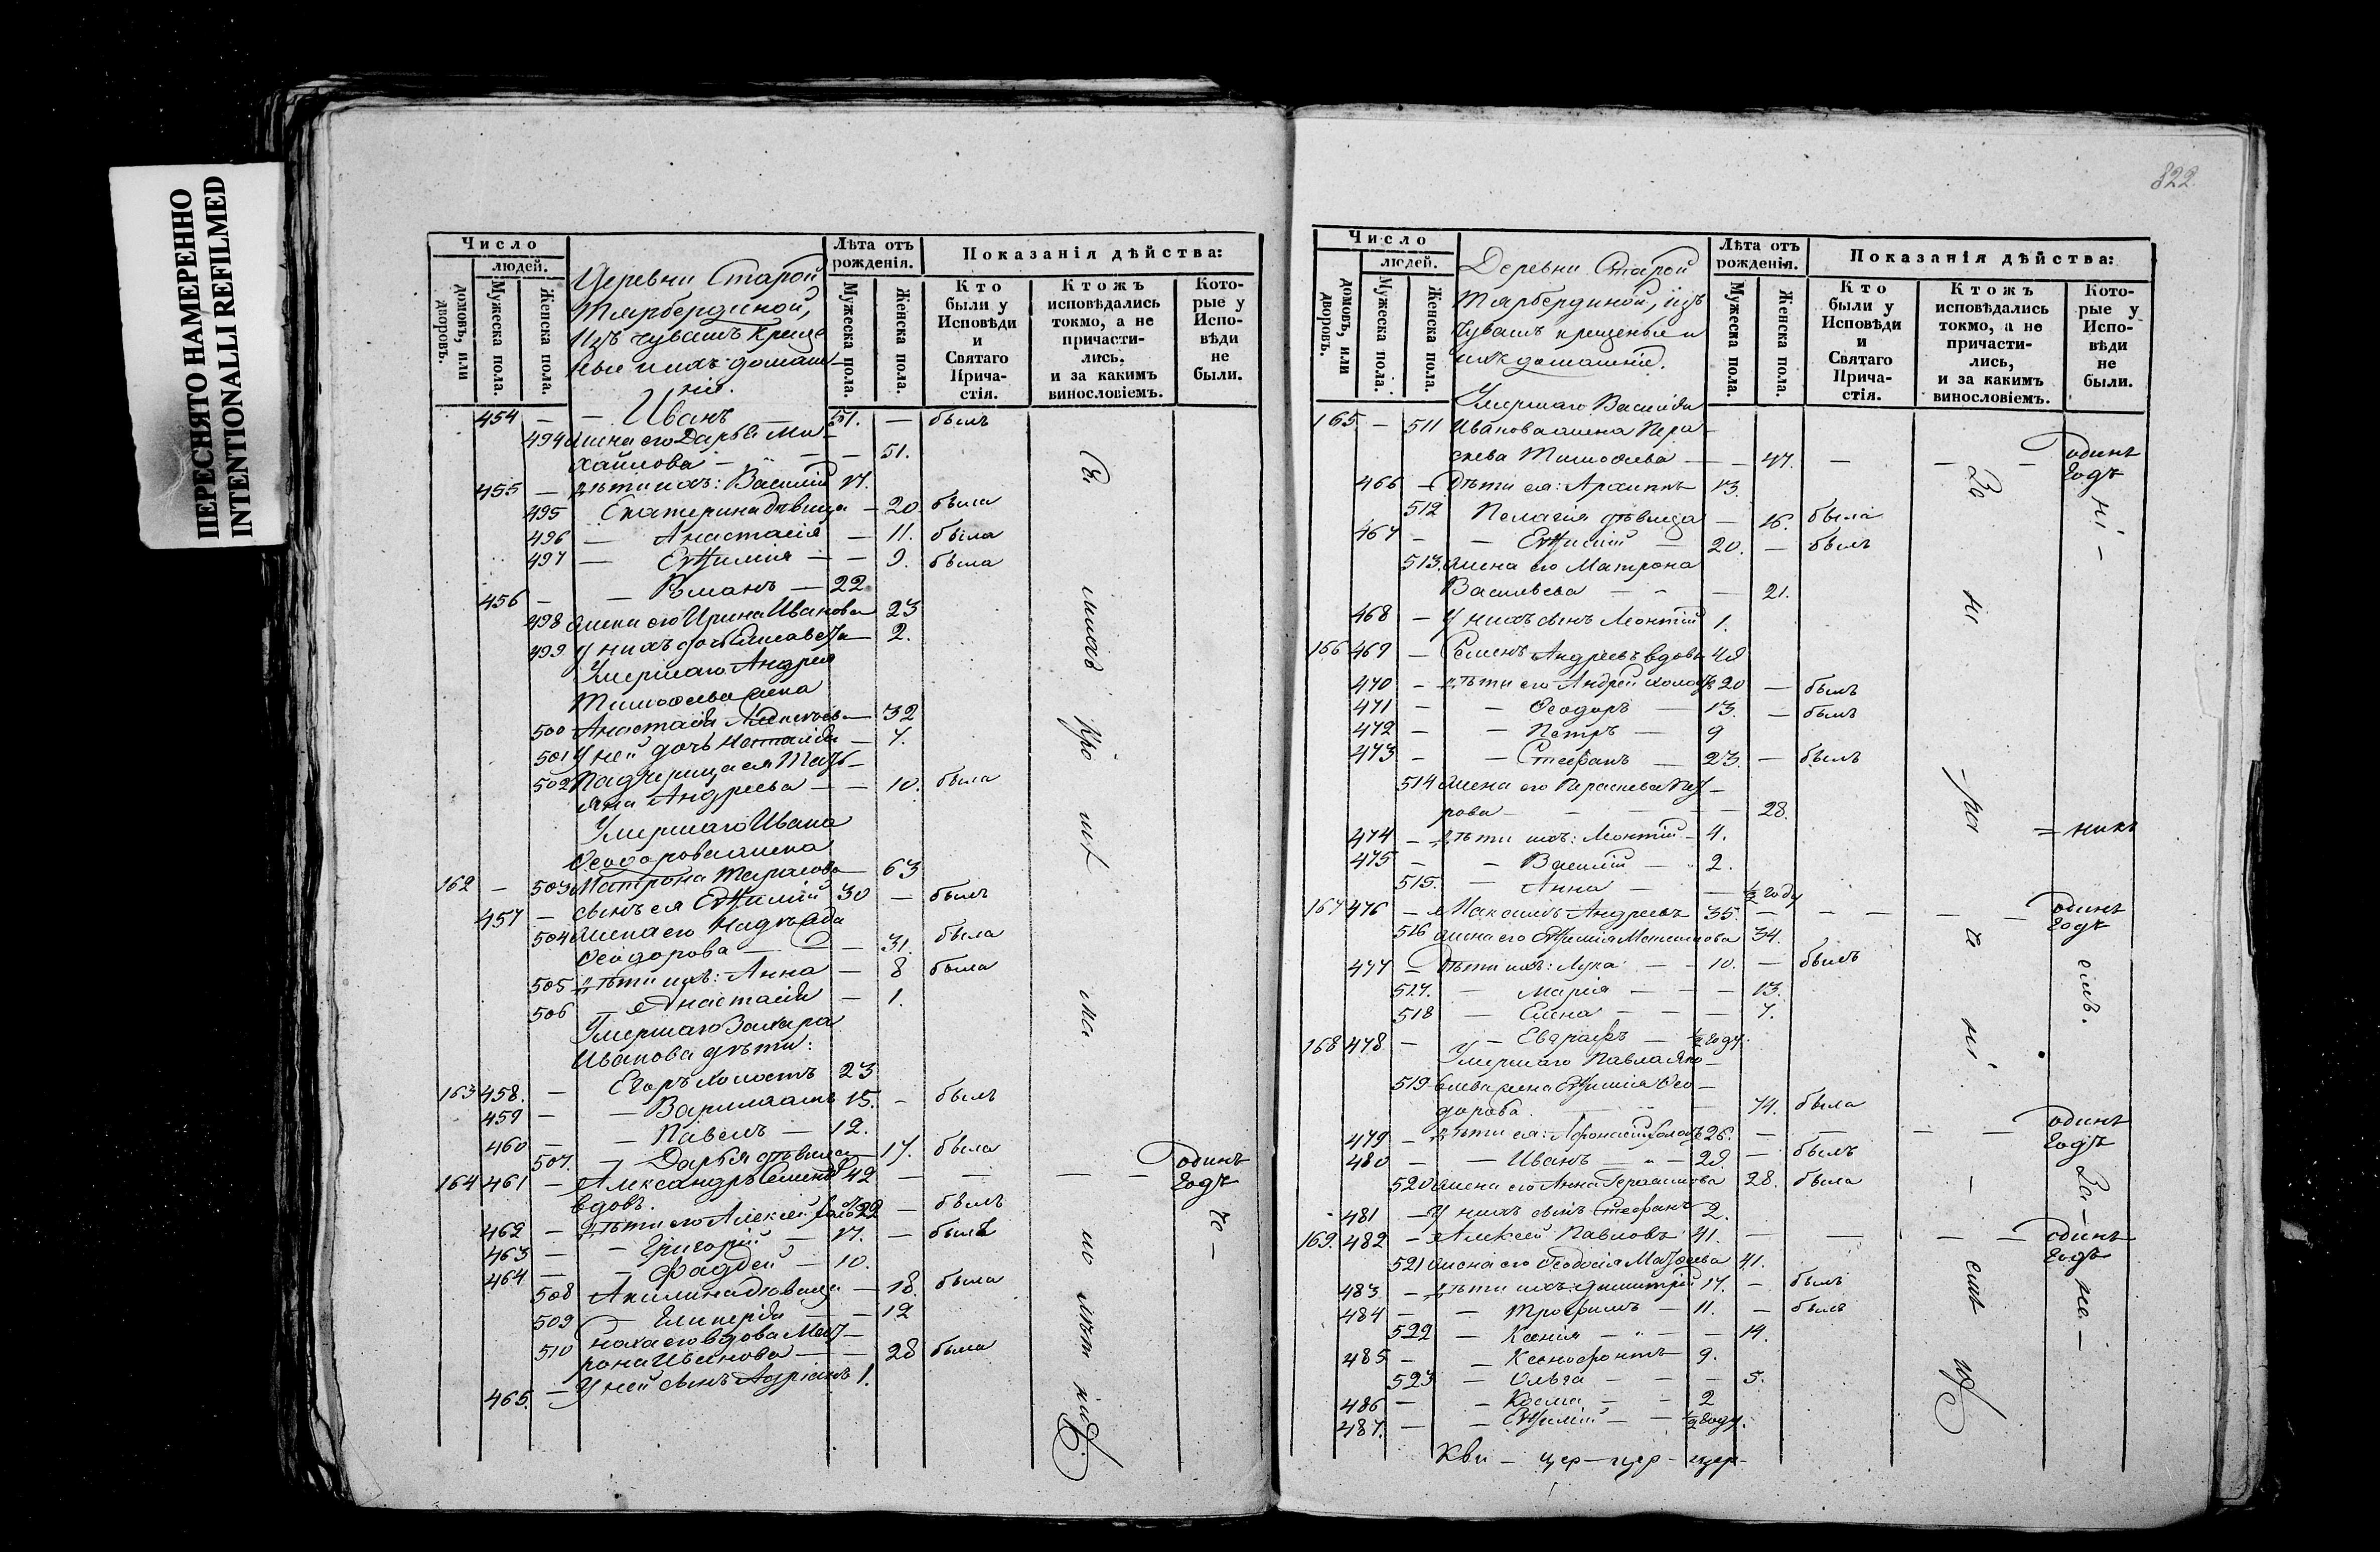 ПЕРЕСНЯТО НАМЕРЕННО
INTENTIONALLI REFILMED
Число
людей.
домовъ, или дворовъ.
Мужеска пола.
Женска пола.
Деревни Старой
Тярбердиной,
Изъ чувашъ креще
ныи ихъ домаш-
ніе.
Лѣта отъ рожденія.
Мужеска пола.
Женска пола.
Показанія дѣйства:
Кто были у Исповѣди и Святаго Прича-стія.
Ктожъ исповѣдались токмо, а не причасти-лись, и за какимъ винословіемъ.
Кото-рые у Испо-вѣди не были.
454 — — Иванъ — 51. — былъ
494 жена его Дарья Ми-
хайлова — — — 51.
455 — дѣти ихъ: Василій 17.
495 Екатерина дѣвица — 20. была
496 — Анастасія — 11. была
497 — Евѳимія — — 9. была
456 — — Романъ — 22
498 жена его Ирина Иванова 23
499 у нихъ дочь Елисавета — 2.
Умершаго Андрея
Тимоѳеева жена
500 Анастасія — 32
501 У ней дочь Наталія — 7.
502 Падчерица ея Тать-
яна Андреева — — 10. была
Умершаго Ивана
Ѳеодорова жена
162 — 503 Матрона Тарасова — 63
457 — сынъ ея Евѳимій 30 — былъ
504 жена его Надежда
Ѳеодорова — — 31. была
505 дѣти ихъ: Анна — 8 была
506 — Анастасія — 1.
Умершаго Захара
Иванова дѣти:
163 458. — Егоръ холостъ 23
459 — — Варлаамъ 15. — былъ
460 — — Павелъ — 12.
507. — Дарья дѣвица — 17. была
164 461 — Александръ Семеновъ 42 — — — — одинъ
вдовъ. годъ
462 — дѣти его Алексей холос 22 — былъ
463 — — Григорій — 17. — былъ
464 — — Фаддей — 10.
508 Акилина дѣвица — 18. была
509 — Гликерія — — 12
510 сноха его вдова Мат-
рона Иванова — — 28 была
465. — У ней сынъ Адріанъ 1.
822.
Число
людей.
домовъ, или дворовъ.
Мужеска пола.
Женска пола.
Деревни Старой
Тярбердиной, изъ
Чувашъ крещеныи и
ихъ домашніи.
Лѣта отъ рожденія.
Мужеска пола.
Женска пола.
Показанія дѣйства:
Кто были у Исповѣди и Святаго Прича-стія.
Ктожъ исповѣдались токмо, а не причасти-лись, и за какимъ винословіемъ.
Кото-рые у Испо-вѣди не были.
Умершаго Василія
165. — 511 Иванова жена Пера-
скева Тимоѳеева — — 47. — — — одинъ годъ
466 — Дѣти ея: Архиппъ 13.
512 Пелагія дѣвица — 16. была
467 — — Евѳимій — 20. — былъ
513. жена его Матрона
Васильева — — — 21.
468 — У нихъ сынъ Леонтій 1.
166 469 — Семенъ Андреевъ вдовъ 48
470 — дѣти его Андрей холостъ 20 — былъ
471 — — Ѳеодоръ — 13. — былъ
472 — — Петръ — 9
473 — — Стефанъ — 23. — былъ
514 жена его Параскева Пет-
рова — — — — 28.
474 — дѣти ихъ: Леонтій — 4.
475 — — Василій — 2.
515. — Анна — — ½ году
167 476 — Максимъ Андреевъ 35. — — — — — одинъ годъ
516 жена его Евѳимія Максимова 34.
477 — Дѣти ихъ: Лука — — 10. — былъ
517. — Марія — — — 13.
518 — Елена — — — 7.
168 478 — — Евграфъ — ½ году.
Умершаго Павла Яко-
519 влева жена Евѳимія Ѳео-
дорова. — — — 74. была
479 — дѣти ея: Афонасій холостъ 26. — — — — одинъ годъ
480 — — Иванъ — — 28. — былъ
520 жена его Анна Герасимова 28. была
481 — У нихъ сынъ Стефанъ 2.
169. 482 — Алексей Павловъ 41. — — — — одинъ годъ
521 жена его Ѳеодосія Матѳеева 41.
483 — дѣти ихъ Димитрій 17. — былъ
484 — — Трофимъ — 11. — былъ
522 — Ксенія — — — 14.
485 — — Ксенофонтъ 9.
523 — Ольга — — — 5.
486 — — Косма — — 2
487. — — Евѳимій — — ½ году.